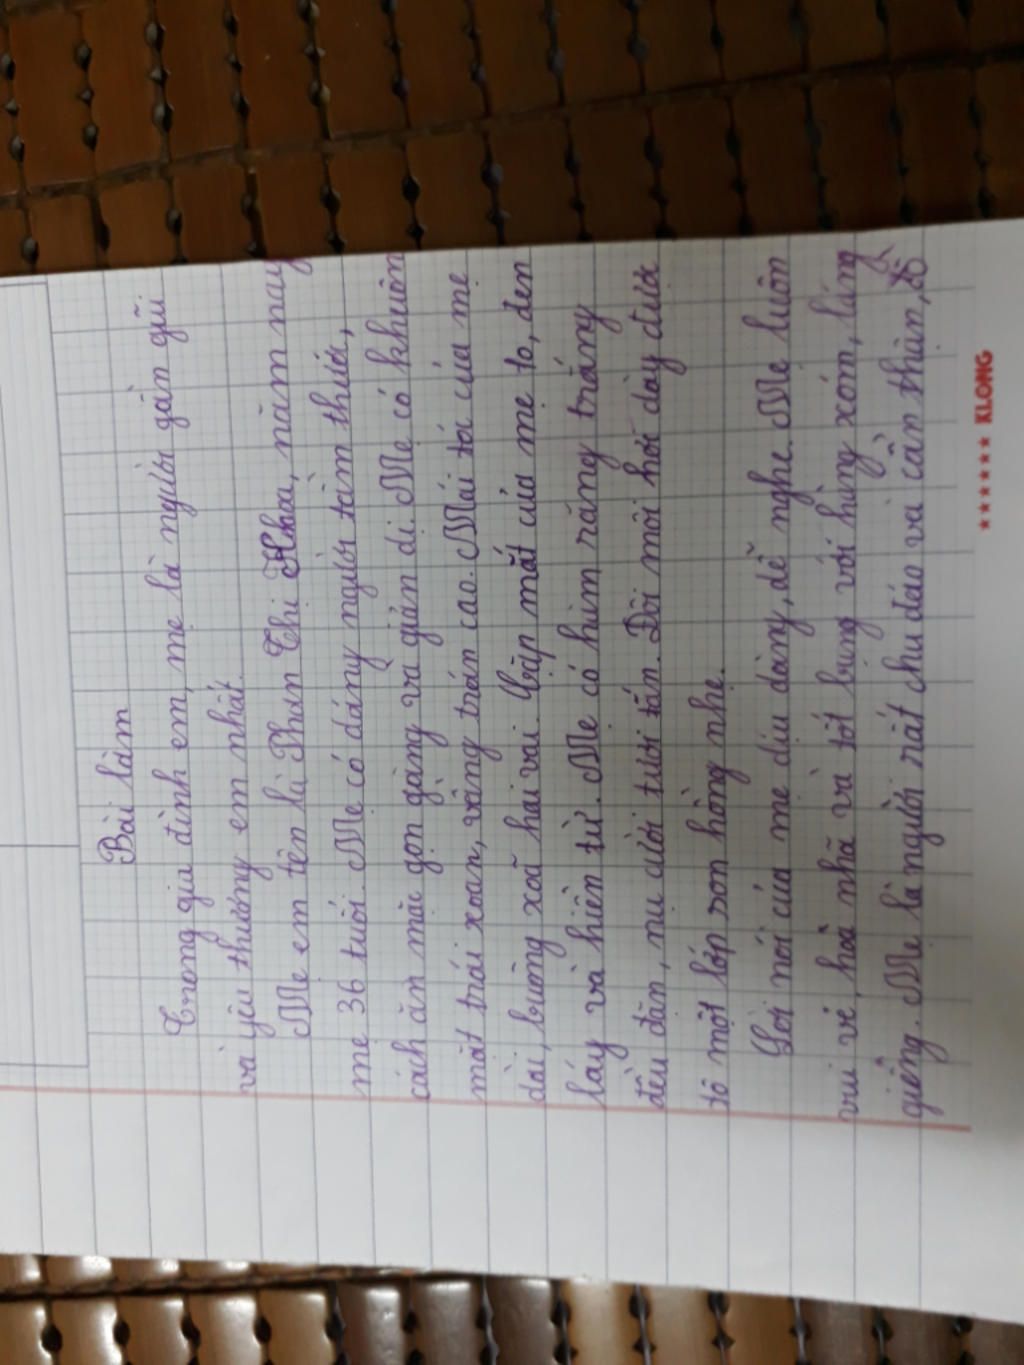 Bài làm
Trong gia đình em, mẹ là người gần gũi
và yêu thương em nhất.
Mẹ em tên là Phan Thị Hoa, năm nay
mẹ 36 tuổi. Mẹ có dáng người tầm thước,
cách ăn mặc gọn gàng và giản dị. Mẹ có khuôn
mặt trái xoan, vầng trán cao. Mái tóc của mẹ
dài, buông xoã hai vai. Cặp mắt của mẹ to, đen
láy và hiền từ. Mẹ có hàm răng trắng
đều đặn, nụ cười tươi tắn. Đôi môi hơi dày được
tô một lớp son hồng nhẹ.
Lời nói của mẹ dịu dàng, dễ nghe. Mẹ luôn
vui vẻ, hoà nhã và tốt bụng với hàng xóm, láng
giềng. Mẹ là người rất chu đáo và cẩn thận, đồ
★★★★★★ KLONG